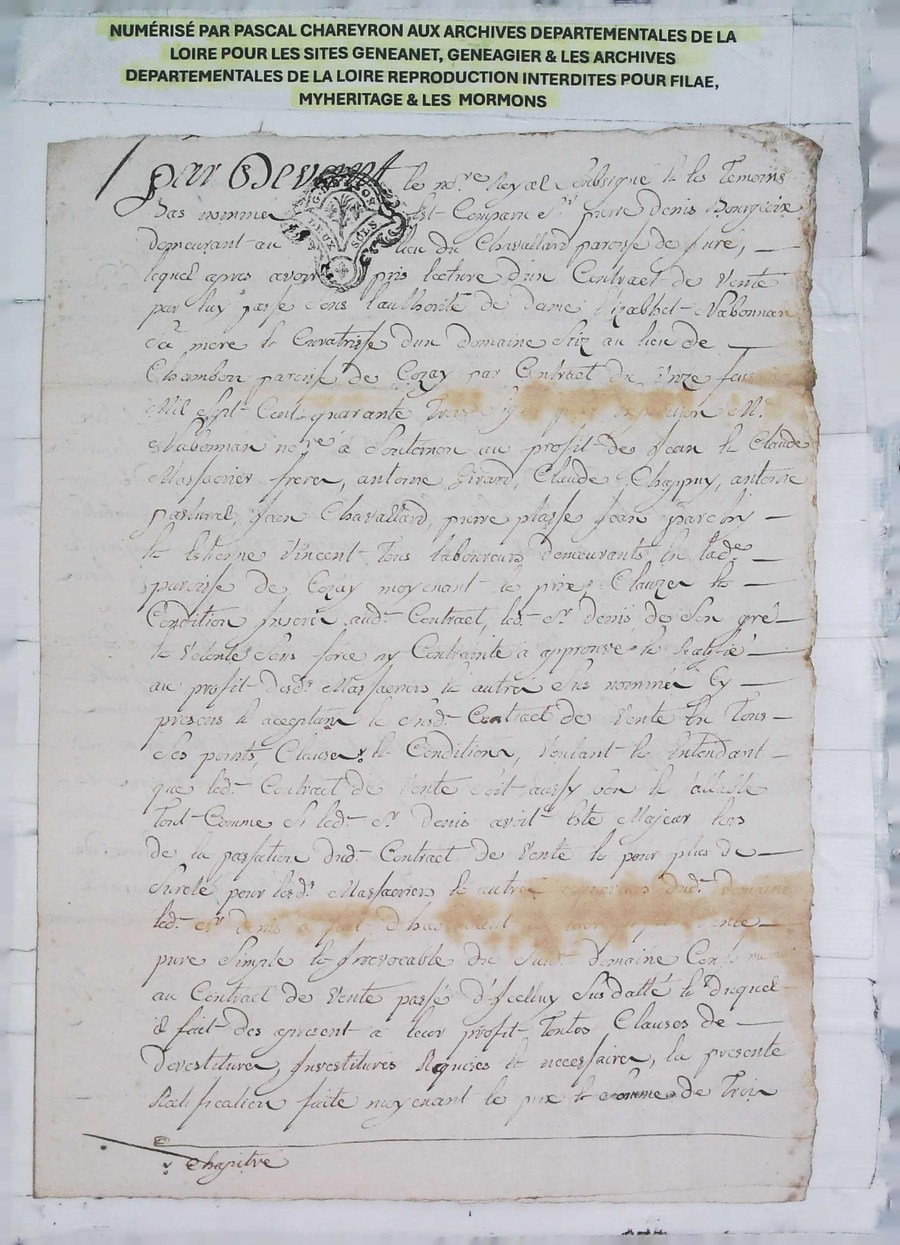 NUMÉRISÉ PAR PASCAL CHAREYRON AUX ARCHIVES DEPARTEMENTALES DE LA
LOIRE POUR LES SITES GENEANET, GENEAGIER & LES ARCHIVES
DEPARTEMENTALES DE LA LOIRE REPRODUCTION INTERDITES POUR FILAE,
MYHERITAGE & LES MORMONS
Par Devant le nore Royal soubsigné & les Temoins
bas nommes Est Comparu Sr pierre denis Bourgeois
demeurant au lieu du Chevallard paroisse de Juré,
lequel apres avoir pris lecture d'un Contract de Vente
par luy passé sous l'authorité de dame Nabonnan
sa mere & Curatrisse d'un domaine sciz au lieu de
Chambon paroisse de Cezay par Contract du Unze
Mil Sept Cent quarante Trois M.
Nabonnan nore a Souternon au profit de Jean & Claude
Massacrier freres, antoine Girard, Claude Chappuy, antoine
pastural, Jean Chavallard, pierre plasse Jean
& Estienne Vincent Tous laboureurs demeurants En lade
paroisse de Cezay moyenant le prix, Clauzes &
Condition Inseré audt Contract, ledt Sr denis de Son gré
& Volonté Sans force ny Contrainte a approuvé & Ratifié
au profit desds Massacriers & autres sus nommés Cy
presens & aceptans le susdt Contract de Vente En Tous
Ses points, Clauses & Conditions, Voulant & Entendant
que ledt Contract de Vente soit aussy bon & Vallable
Tout Comme Si ledt Sr denis avoit Esté Majeur lors
de la passation dudt Contract de Vente & pour plus de
Sureté pour lesds Massacriers & autres dudt domaine
ledt Sr denis a fait
pure Simple & Irrevocable du Susdt domaine
au Contract de Vente passé d'Icelluy Sus datté & Duquel
il fait des apresent a leur profit Toutes Clauses de
Devestitures, Investitures Requises & necessaires, la presente
Ratification faite moyenant le prix & Somme de Trois
Chapitre